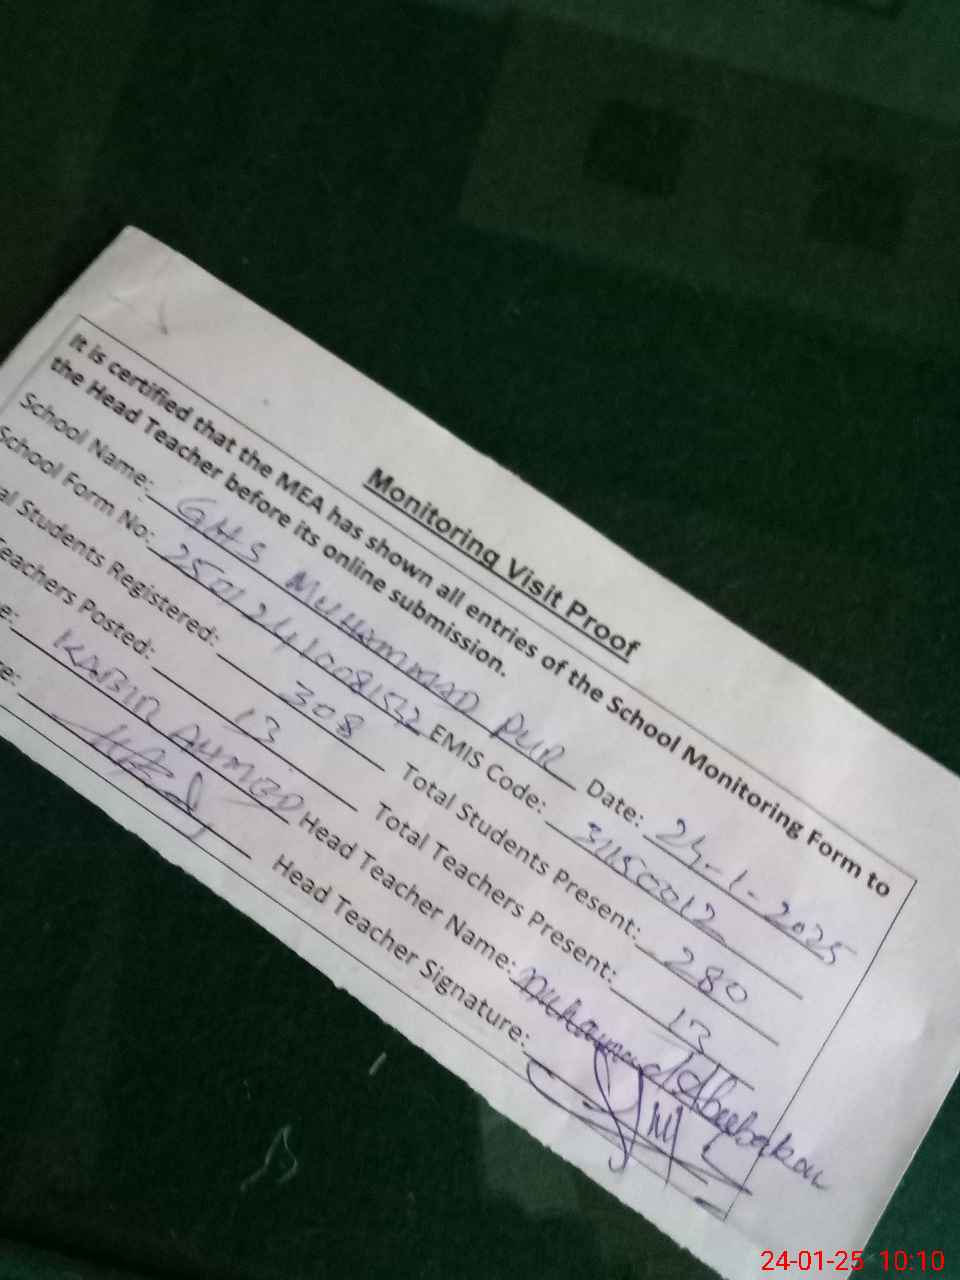 Monitoring Visit Proof
It is certified that the MEA has shown all entries of the School Monitoring Form to
the Head Teacher before its online submission.
School Name: GHS MUHAMMAD PUR Date: 24-1-2025
School Form No: EMIS Code: 31150012
al Students Registered: 308 Total Students Present: 280
eachers Posted: 13 Total Teachers Present: 13
e: KABIR AHMED Head Teacher Name: Muhammad Abubakar
re: Head Teacher Signature:
24-01-25 10:10